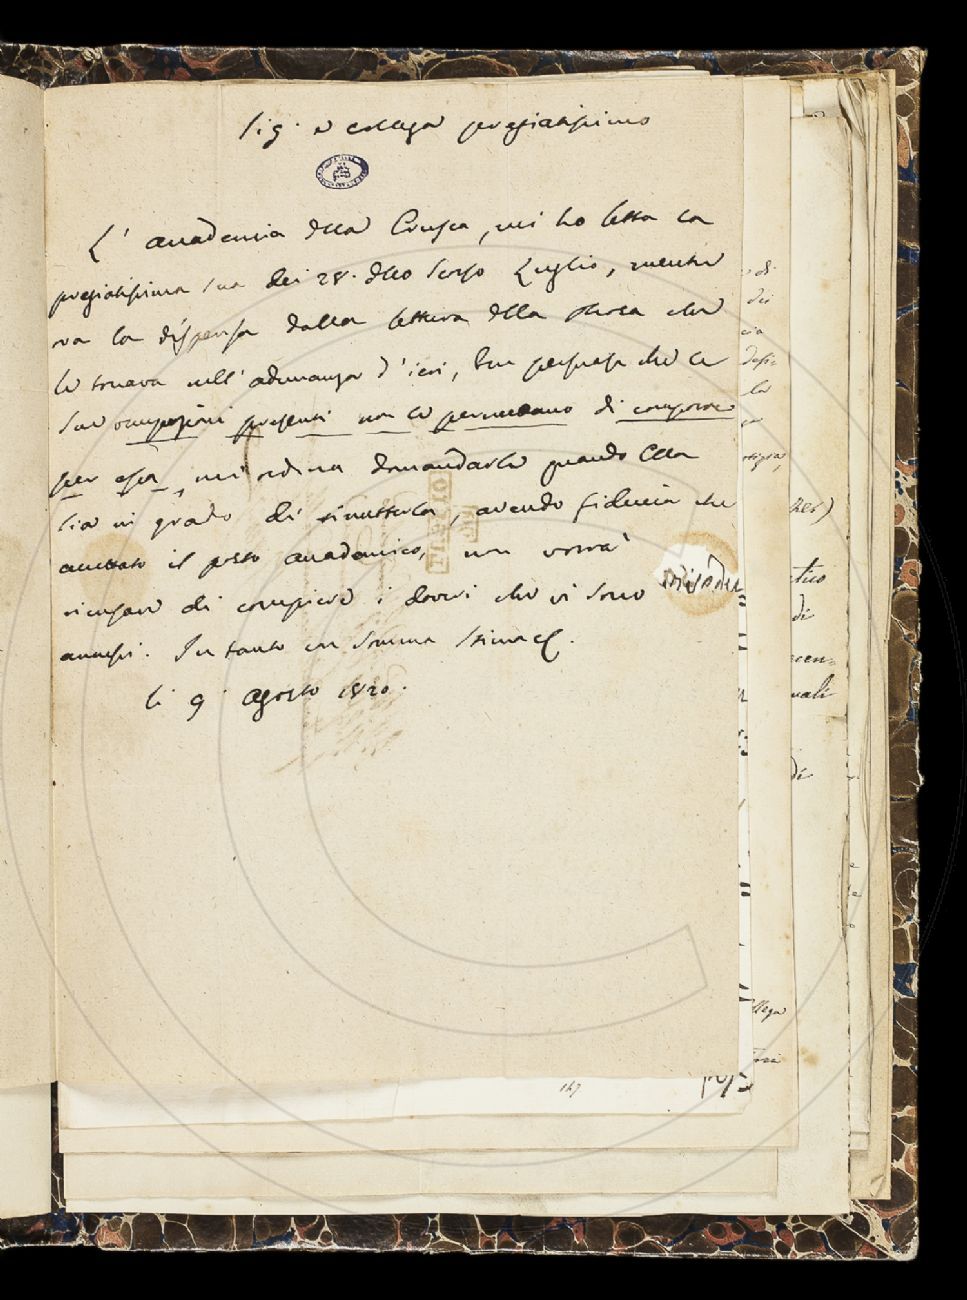 Sig. e collega pregiatissimo
L' accademia della Crusca, cui ho letta la
pregiatissima sua dei 28. dello scorso Luglio, mentre
va la dispensa dalla lettura della che
le toccava nell' adunanza d' ieri, ben persuasa che le
sue occupazioni presenti non le permettano di comporre
per essa, mi ordina domandarle quando Ella
sia in grado di rimetterla, avendo fiducia che
accettato il posto accademico, non vorrà
ricusare di compiere i doveri che vi sono
annessi. In tanto con somma stima &c.
li 9 agosto 1820.
di
dei
la
her)
di
di
collega
167